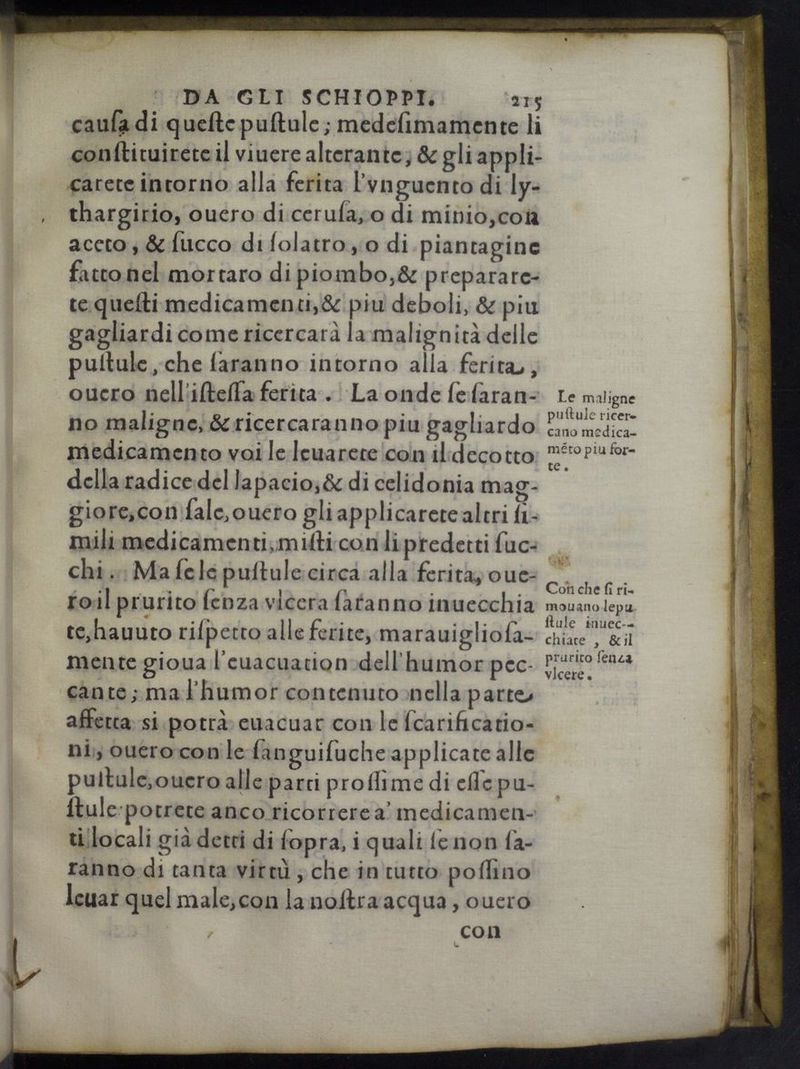 DA GLI SCHIOPPI. 215
cauſa di queſte puſtule; medeſimamente li
conſtituirete il viuere alterante, & gli appli-
carete intorno alla ferita l'vnguento di ly-
thargirio, ouero di ceruſa, o di minio, con
aceto, & ſucco di ſolatro, o di piantagine
fatto nel mortaro di piombo, & preparare-
te queſti medicamenti, & piu deboli, & piu
gagliardi come ricercarà la malignità delle
puſtule, che ſaranno intorno alla ferita,
ouero nell'iſteſſa ferita. La onde ſe ſaran-
no maligne, & ricercaranno piu gagliardo
medicamento voi le leuarete con il decotto
della radice del lapacio, & di celidonia mag-
giore, con ſale, ouero gli applicarete altri ſi-
mili medicamenti, miſti con li predetti ſuc-
chi. Ma ſe le puſtule circa alla ferita, oue-
ro il prurito ſenza vlcera ſaranno inuecchia
te, hauuto riſpetto alle ferite, marauiglioſa-
mente gioua l'euacuation dell'humor pec-
cante; ma l'humor contenuto nella parte
affetta si potrà euacuar con le ſcarificatio-
ni, ouero con le ſanguiſuche applicate alle
puſtule, ouero alle parti proſſime di eſſe pu-
ſtule potrete anco ricorrere a' medicamen-
ti locali già detti di ſopra, i quali ſe non ſa-
ranno di tanta virtù, che in tutto poſſino
leuar quel male, con la noſtra acqua, ouero
con
Le maligne
puſtule ricer-
cano medica-
mẽto piu for-
te.
Con che ſi ri-
mouano le pu
ſtule inuec-
chiate, & il
prurito ſenza
vlcere.